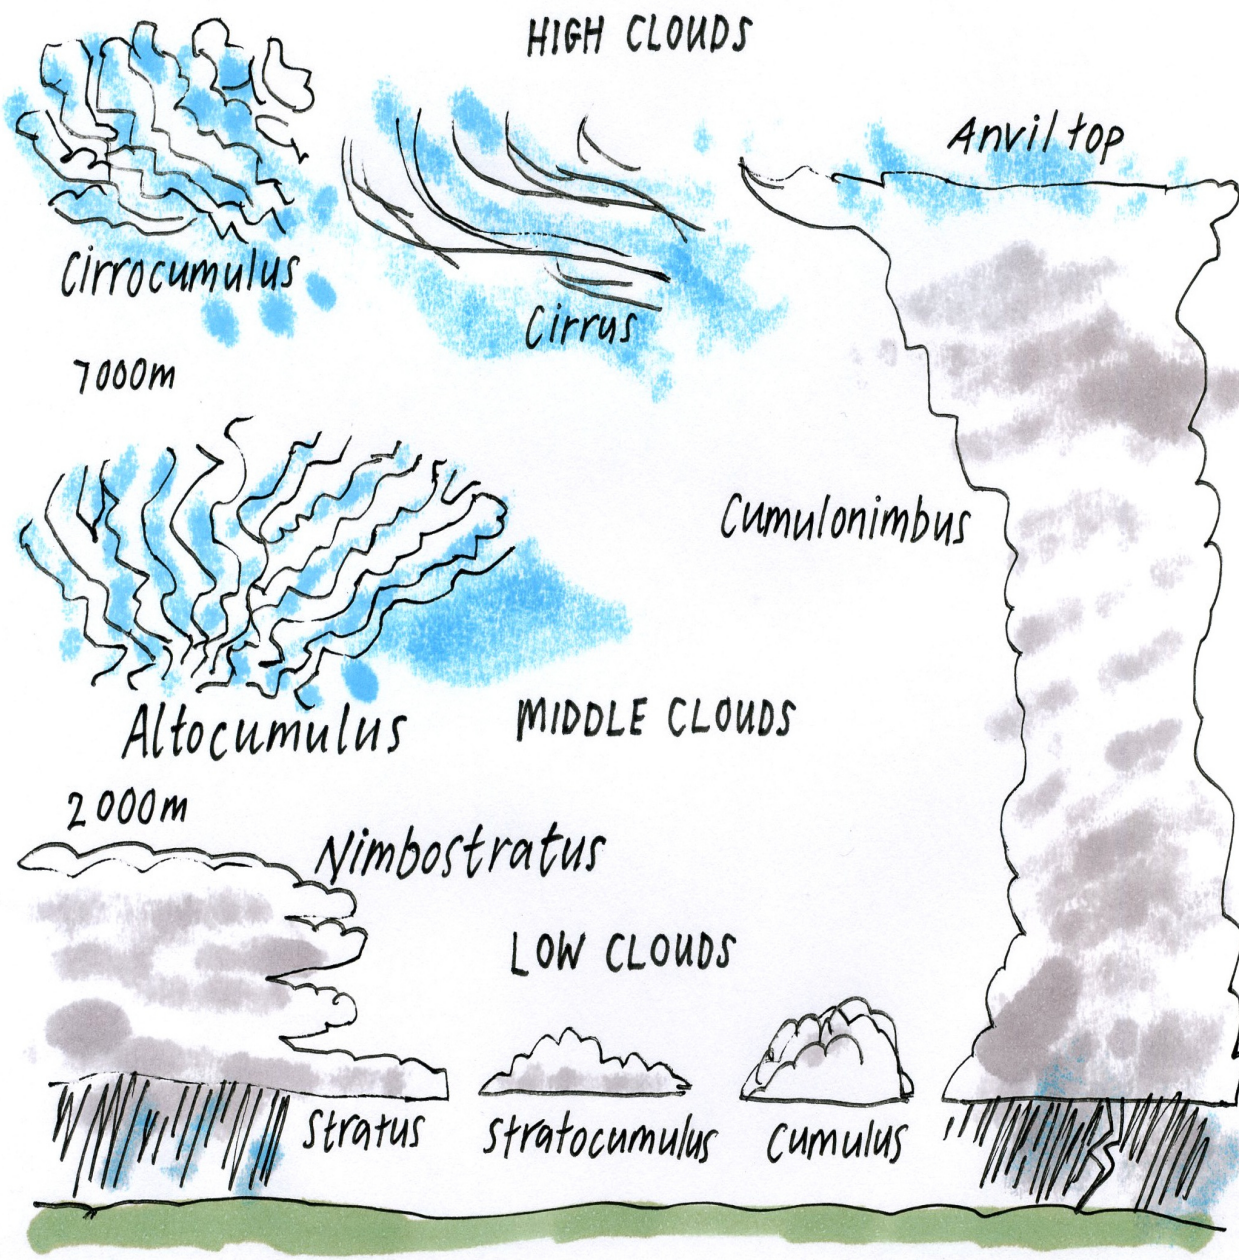 HIGH CLOUDS
Anvil top
Cirrocumulus
Cirrus
7000m
Cumulonimbus
Altocumulus
MIDDLE CLOUDS
2000m
Nimbostratus
LOW CLOUDS
Stratus
Stratocumulus
Cumulus